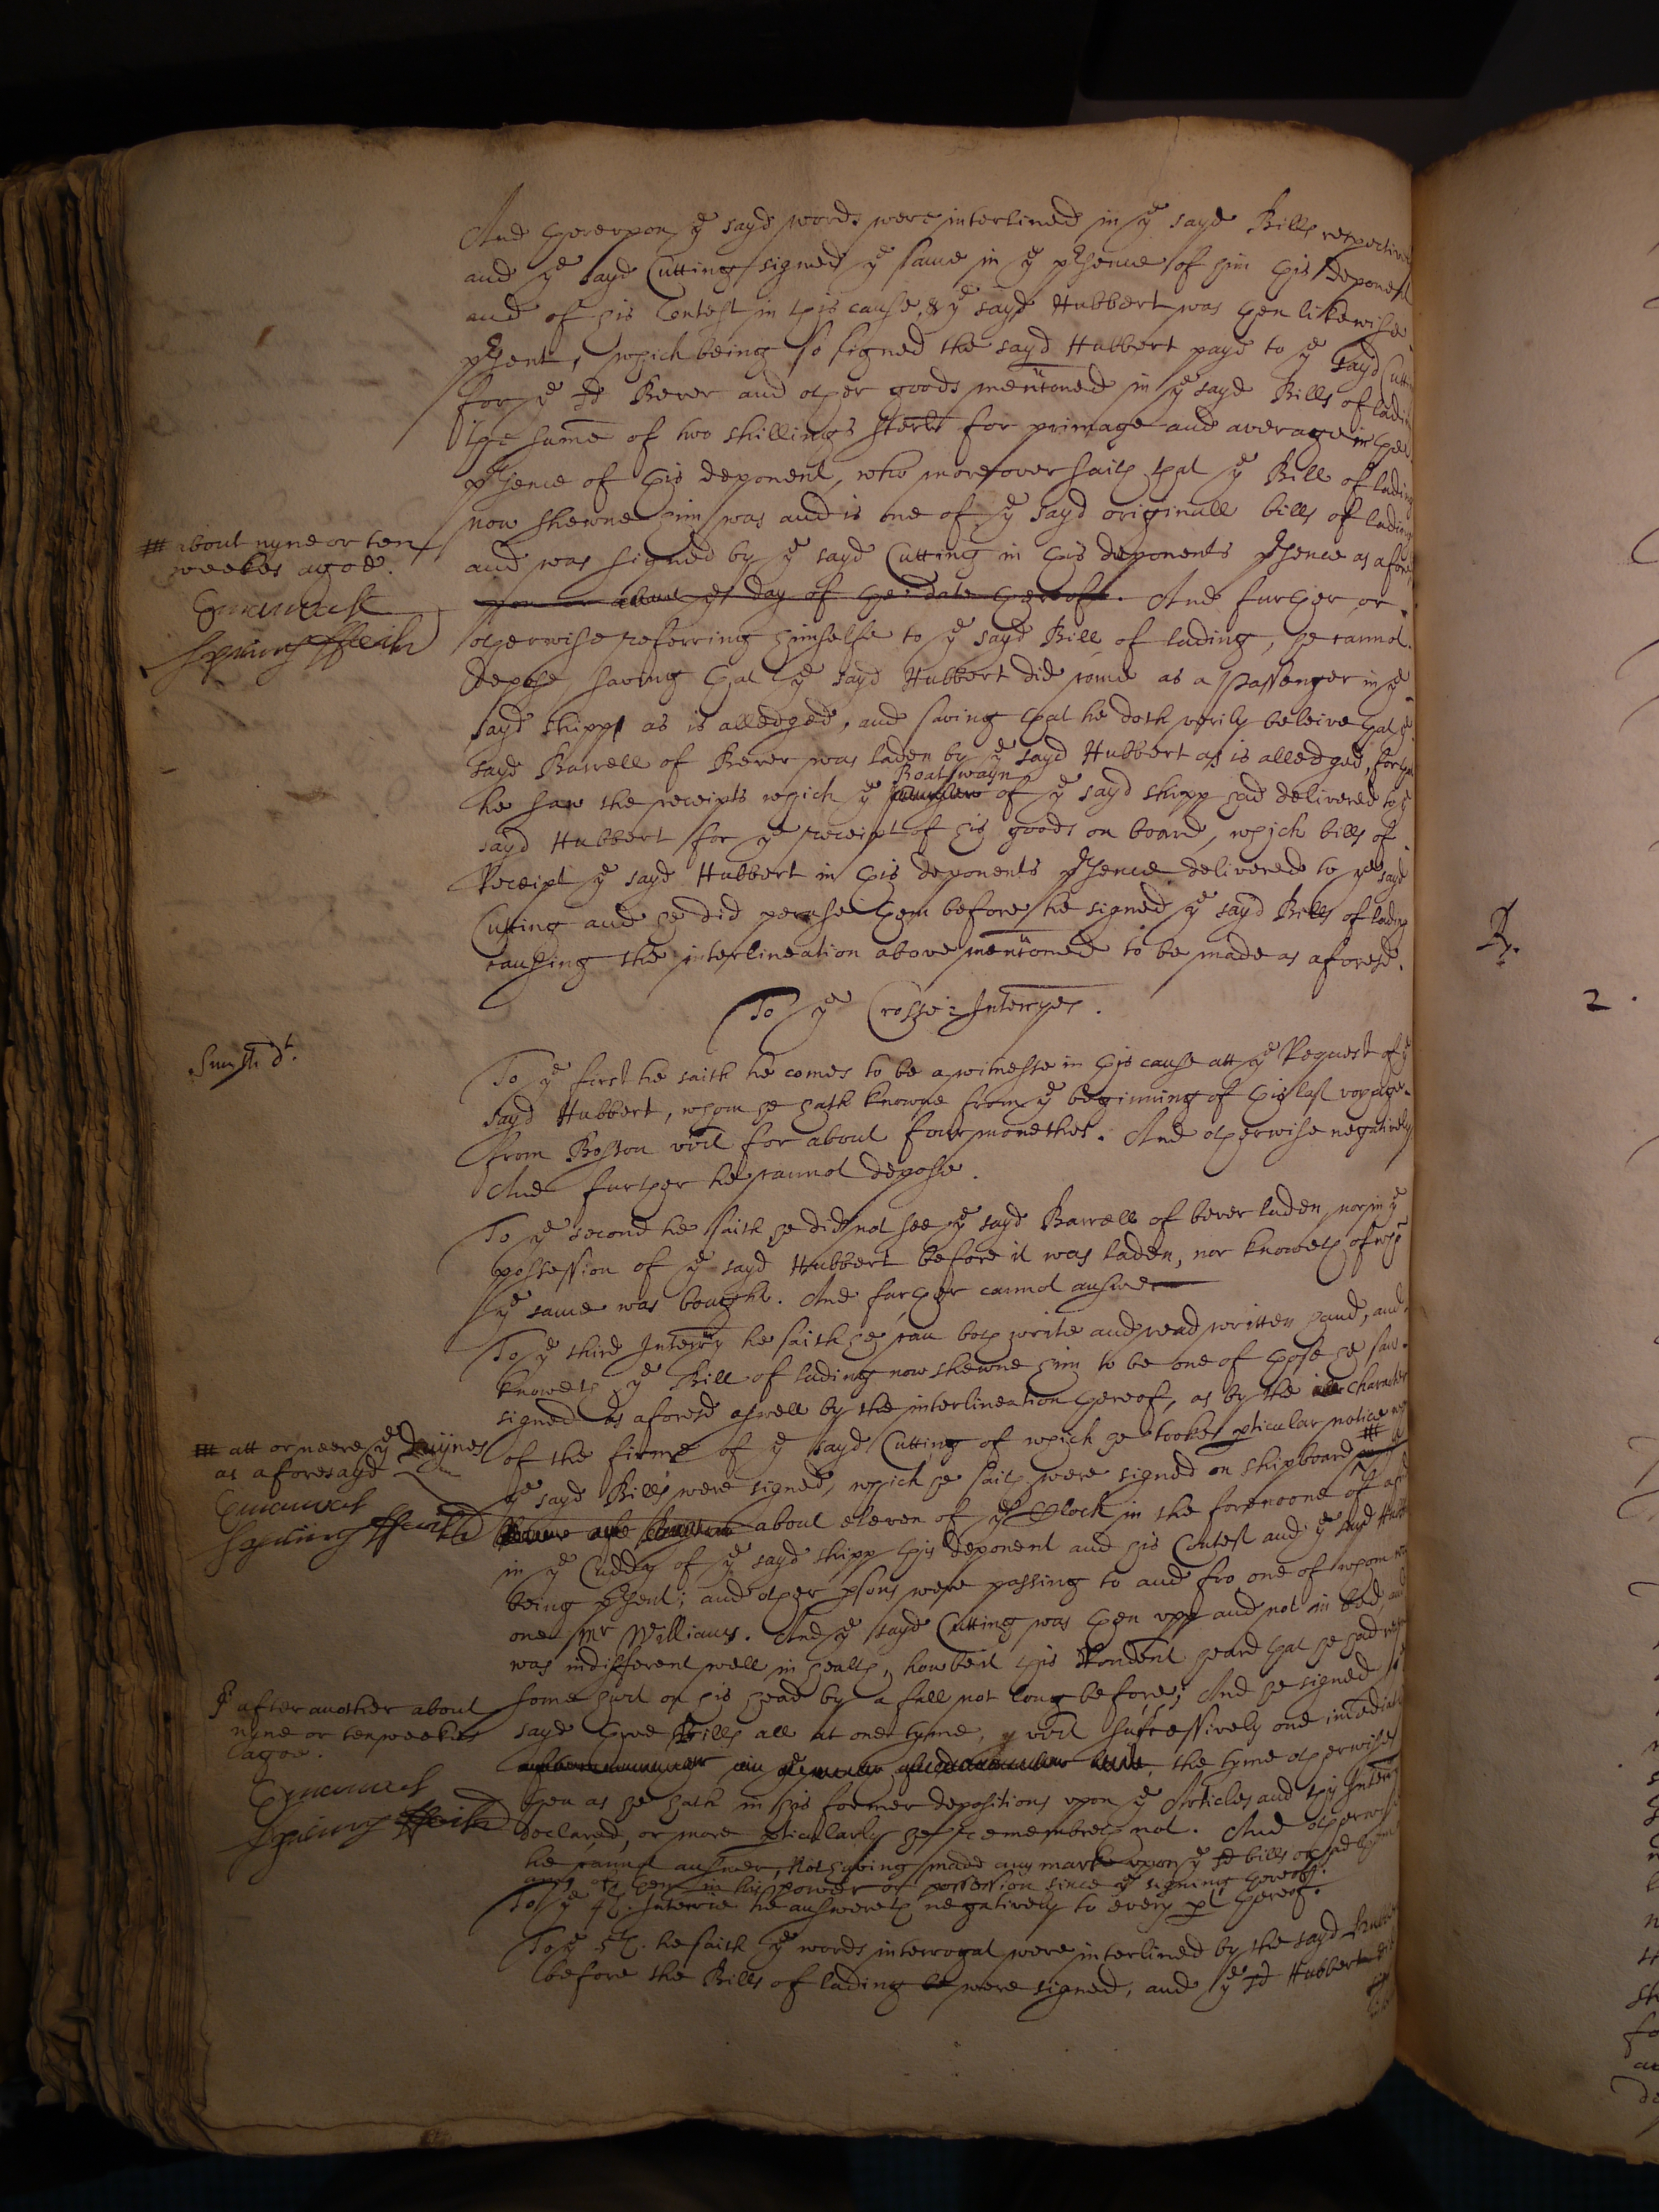 And hereupon ye sayd words were interlined in ye sayd Bills respective
and ye sayd Cutting signed ye same in ye p'sence of him this deponent
and of his Contest in this cause, & ye sayd Hubbert was then likewise
p'sent, which being so signed the sayd Hubbert payd to ye sayd Cutt
for ye sd Bever and other goods mentioned in ye sayd Bills of ladi
the sume of two shillings sterl for primage and average in the
p'sence of this deponent, who moreover saith that ye Bill of lading
now shewne him was and is one of ye sayd originall bills of lading
and was signed by ye sayd Cutting in this deponents p'sence as afore
## about nyne or ten
weekes agoe.
upon or about ye day of the date thereof. And further or
otherwise referring himselfe to ye sayd Bill of lading, he cannot
depose, saving that ye sayd Hubbert did come as a passenger in ye
sayd shipp as is alledged, and saving that he doth verily beleive that ye
sayd Barrell of Bever was laden by ye sayd Hubbert as is alledged, for
Boatswayn
he saw the receipts which ye of ye sayd shipp had delivered to ye
sayd Hubbert for ye receipt of his goods on board, which bills of
Receipt ye sayd Hubbert in this deponents p'sence delivered to ye sayd
Cutting and he did peruse them before he signed ye sayd Bills of lading
causing the interlineation above mentioned to be made as aforesd.
To ye Crosse Interryes.
To ye first he saith he comes to be a witnesse in this cause att ye Request of ye
sayd Hubbert, whom he hath knowne from ye beginning of this last voyage
from Boston vizt for about four monethes. And otherwise negatively
And further he cannot depose.
To ye second he saith he did not see ye sayd Barrell of bever laden nor in ye
possession of ye sayd Hubbert before it was laden, nor knoweth of
ye same was bought. And further cannot answer
To ye third Interry he saith he can both write and read written hand, and
knoweth ye Bill of lading now shewne him to be one of those he saw
signed as aforesd aswell by the interlineation thereof, as by the character
of the firme of ye sayd Cutting of which he tooke p'ticular notice
ye sayd Bills were signed, which he saith were signed on shipboard ##
## att or neere ye Duynes
as aforesayd
about eleven of ye Clock in the forenoone of
in ye Cuddy of ye sayd shipp this deponent and his Contest and ye sayd Hubb
being p'sent; and other p'sons were passing to and fro one of whom
one Mr Williams. And ye sayd Cutting was then upp and not in bed, and
was indifferent well in health, howbeit this Rondent heard that he had
some hurt on his head by a fall not long before; And he signed
sayd three Bills all at one tyme, vizt successively one imediat
after another about
nyne or ten weekes
agoe.
the tyme otherwise
then as he hath in his former depositions upon ye Articles and this Interr
declared, or more p'ticularly he remembreth not. And otherwise
he cannot answer, Not having made any marke upon ye sd bills or
any of them in his power or possession since ye signing thereof.
To ye 4th. Interrie he answereth negatively to every p't thereof.
To ye 5th. he saith ye words interrogat were interlined by the sayd
before the Bills of lading be were signed, and ye sd Hubbert
R.
2.